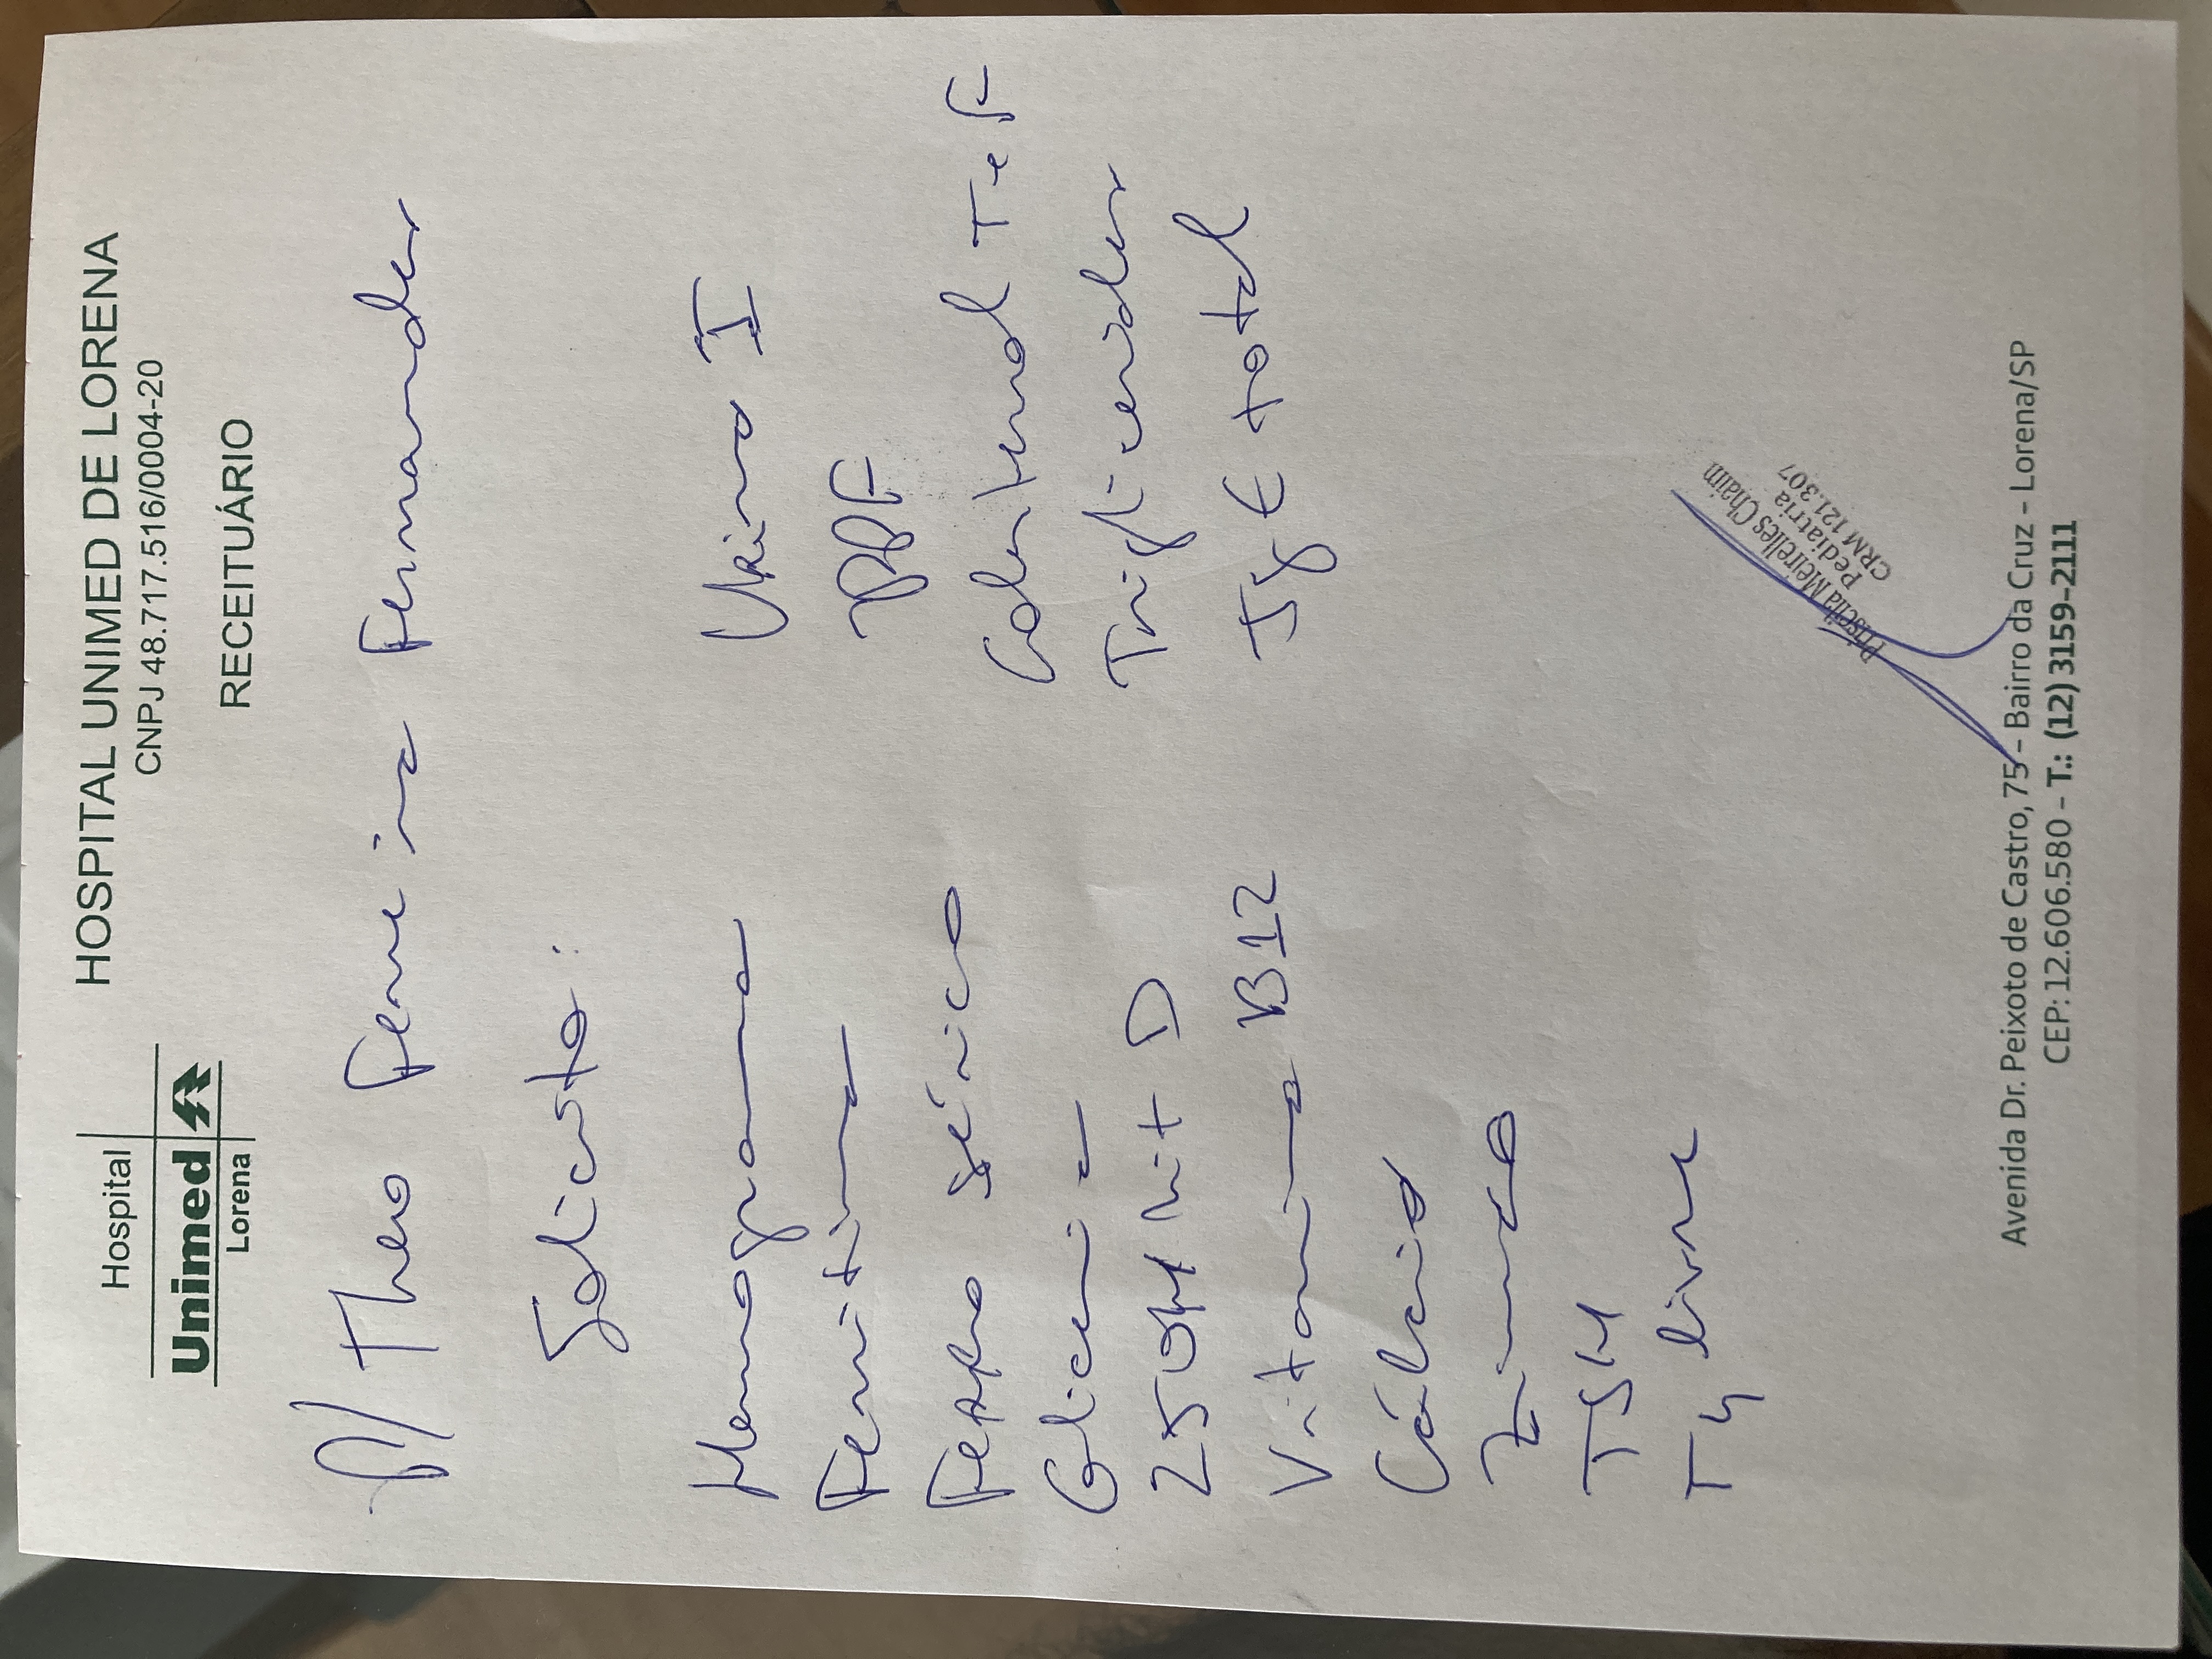 Hospital
Unimed
Lorena
HOSPITAL UNIMED DE LORENA
CNPJ 48.717.516/0004-20
RECEITUÁRIO
P/ Theo Ferreira Fernandes
Solicito:
Hemograma
Ferritina
Ferro sérico
Glicemia
25OH Vit D
Vitamina B12
Cálcio
Zinco
TSH
T4 livre
Urina I
PPF
Colesterol T e F
Triglicerides
IgE total
Priscila Meirelles Chaim
Pediatria
CRM 121.307
Avenida Dr. Peixoto de Castro, 75 - Bairro da Cruz - Lorena/SP
CEP: 12.606.580 - T.: (12) 3159-2111